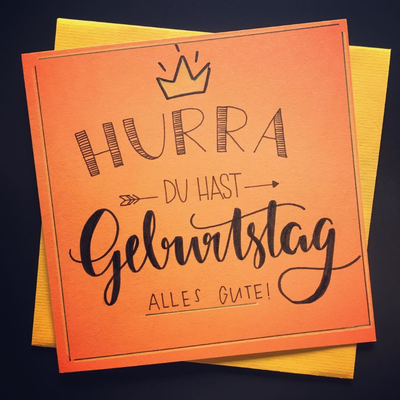 HURRA
DU HAST
Geburtstag
ALLES GUTE!